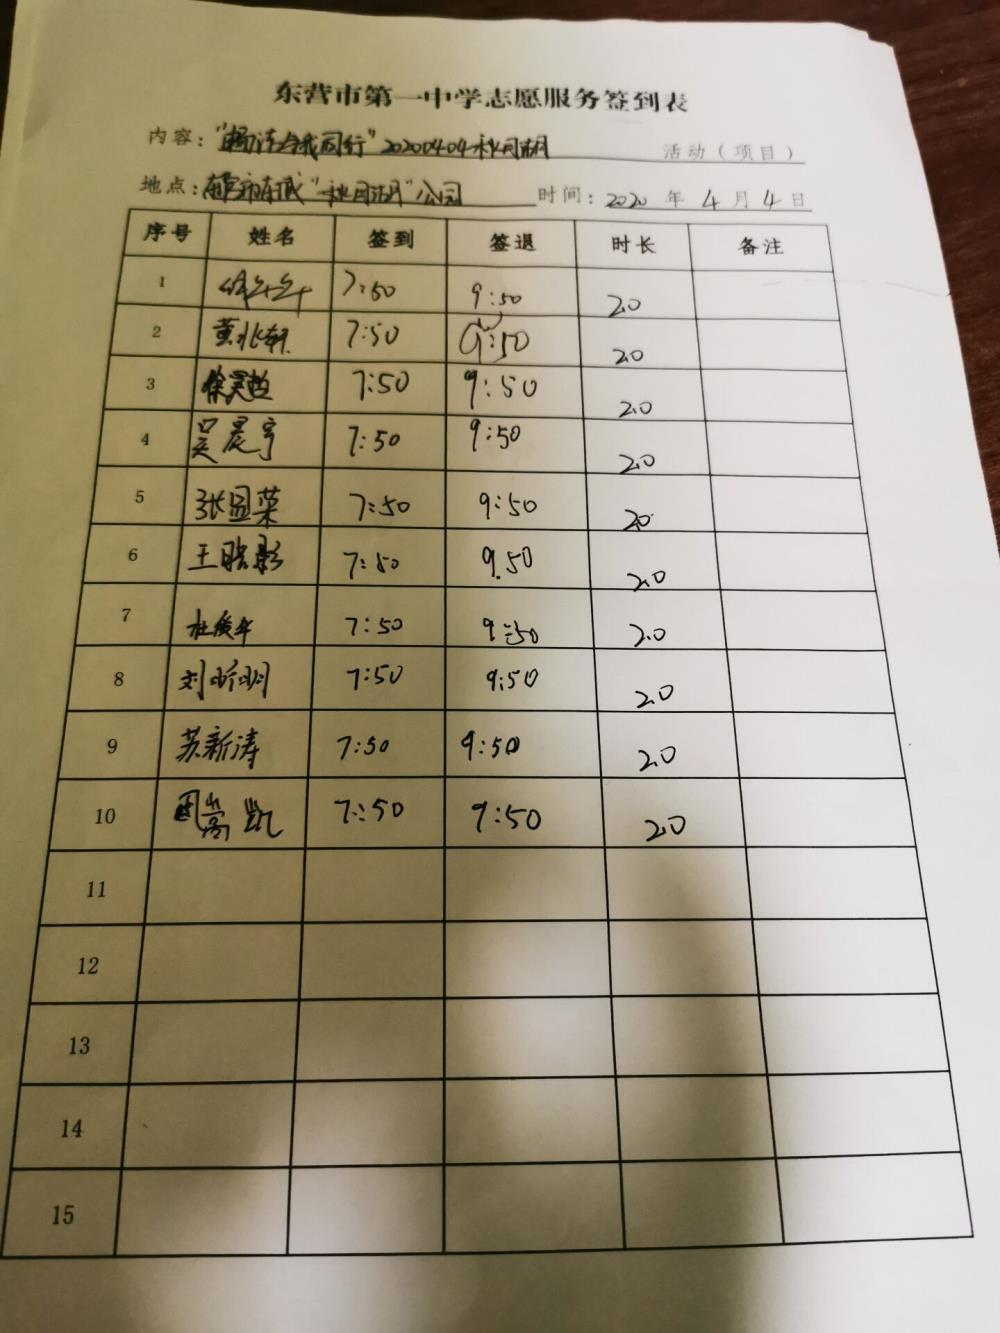 东营市第一中学志愿服务签到表
内容：同行"20200404秋月湖 活动（项目）
地点：东营市东城"秋月湖"公园 时间：2020年4月4日
序号 姓名 签到 签退 时长 备注
1 7:50 9:50 2.0
2 黄兆轩 7:50 9:50 2.0
3 徐昊哲 7:50 9:50 2.0
4 吴晨宇 7:50 9:50 2.0
5 张盟荣 7:50 9:50 2.0
6 王晓影 7:50 9.50 2.0
7 杜俊华 7:50 9:50 2.0
8 刘昕明 7:50 9:50 2.0
9 苏新涛 7:50 9:50 2.0
10 周嵩凯 7:50 9:50 2.0
11
12
13
14
15